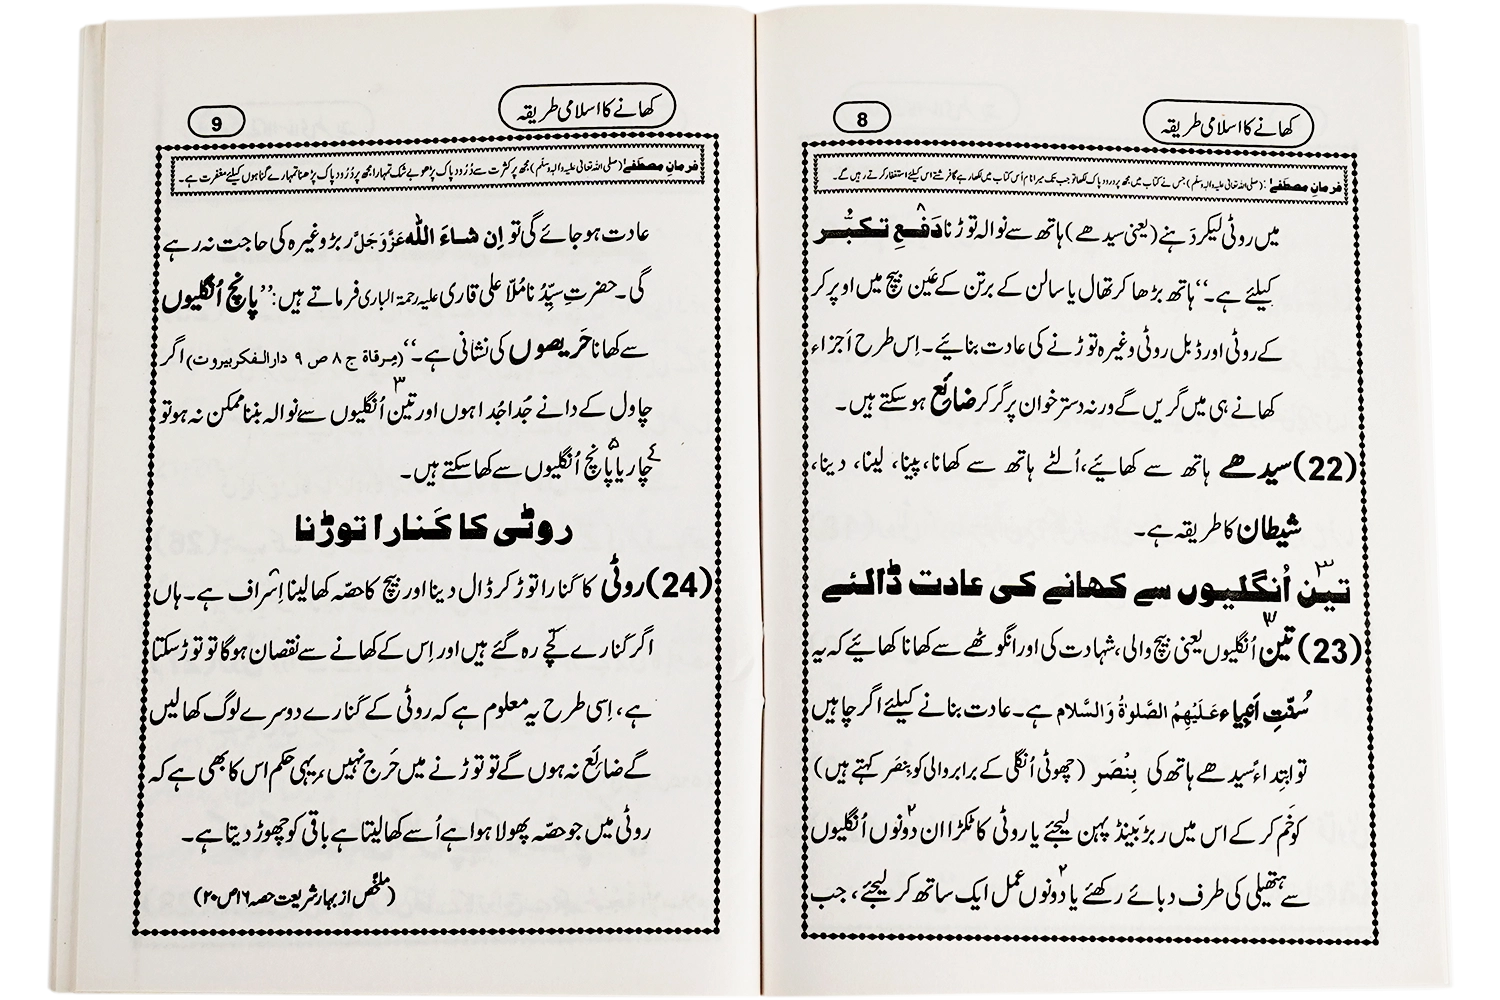 کھانے کا اسلامی طریقہ
8
فرمانِ مصطَفٰے: (صلی اللہ تعالیٰ علیہ والہ وسلّم) جس نے کتاب میں مجھ پر درود پاک لکھا تو جب تک میرا نام اُس کتاب میں لکھا رہے گا فرشتے اس کیلئے استغفار کرتے رہیں گے۔
میں روٹی لیکر دَہنے (یعنی سیدھے) ہاتھ سے نوالہ توڑنا دَفْعِ تکبُّر
کیلئے ہے۔‘‘ ہاتھ بڑھا کر تھال یا سالن کے برتن کے عَین بیچ میں اوپر کر
کے روٹی اور ڈبل روٹی وغیرہ توڑنے کی عادت بنائیے۔ اِس طرح اَجزاء
کھانے ہی میں گریں گے ورنہ دستر خوان پر گر کر ضائِع ہو سکتے ہیں۔
(22) سیدھے ہاتھ سے کھائیے، اُلٹے ہاتھ سے کھانا، پینا، لینا، دینا،
شیطان کا طریقہ ہے۔
تین۳ اُنگلیوں سے کھانے کی عادت ڈالئے
(23) تین۳ اُنگلیوں یعنی بیچ والی، شہادت کی اور انگوٹھے سے کھانا کھائیے کہ یہ
سُنّتِ اَنبِیاء عَلَیْہِمُ الصَّلوٰۃُ وَالسَّلام ہے۔ عادت بنانے کیلئے اگر چاہیں
تو ابتِداءً سیدھے ہاتھ کی بِنْصَر (چھوٹی اُنگلی کے برابر والی کو بِنصَر کہتے ہیں)
کو خَم کر کے اس میں ربڑ بَینڈ پہن لیجئے یا روٹی کا ٹکڑا ان دونوں۲ اُنگلیوں
سے ہتھیلی کی طرف دبائے رکھئے یا دونوں۲ عمل ایک ساتھ کر لیجئے، جب
کھانے کا اسلامی طریقہ
9
فرمانِ مصطَفٰے (صلی اللہ تعالیٰ علیہ والہ وسلّم) مجھ پر کثرت سے دُرُود پاک پڑھو بے شک تمہارا مجھ پر دُرُود پاک پڑھنا تمہارے گناہوں کیلئے مغفرت ہے۔
عادت ہو جائے گی تو اِن شاءَ اللّٰہ عَزَّوَجَلَّ ربڑ وغیرہ کی حاجت نہ رہے
گی۔ حضرتِ سیِّدُنا مُلّا علی قاری علیہ رحمۃ الباری فرماتے ہیں: ’’پانچ اُنگلیوں
سے کھانا حَریصوں کی نشانی ہے۔‘‘ (مِرقاۃ ج ۸ ص ۹ دارالفکر بیروت) اگر
چاول کے دانے جُدا جُدا ہوں اور تین۳ اُنگلیوں سے نوالہ بننا ممکن نہ ہو تو
چار۴ یا پانچ۵ اُنگلیوں سے کھا سکتے ہیں۔
روٹی کا کَنارا توڑنا
(24) روٹی کا کَنارا توڑ کر ڈال دینا اور بیچ کا حصّہ کھا لینا اِسْراف ہے۔ ہاں
اگر کَنارے کچّے رہ گئے ہیں اور اِس کے کھانے سے نقصان ہوگا تو توڑ سکتا
ہے، اِسی طرح یہ معلوم ہے کہ روٹی کے کَنارے دوسرے لوگ کھا لیں
گے ضائِع نہ ہوں گے تو توڑنے میں حَرج نہیں، یہی حکم اس کا بھی ہے کہ
روٹی میں جو حصّہ پھولا ہوا ہے اُسے کھا لیتا ہے باقی کو چھوڑ دیتا ہے۔
(ملخّص از بہارِ شریعت حصہ ۱۶ ص ۲۰)